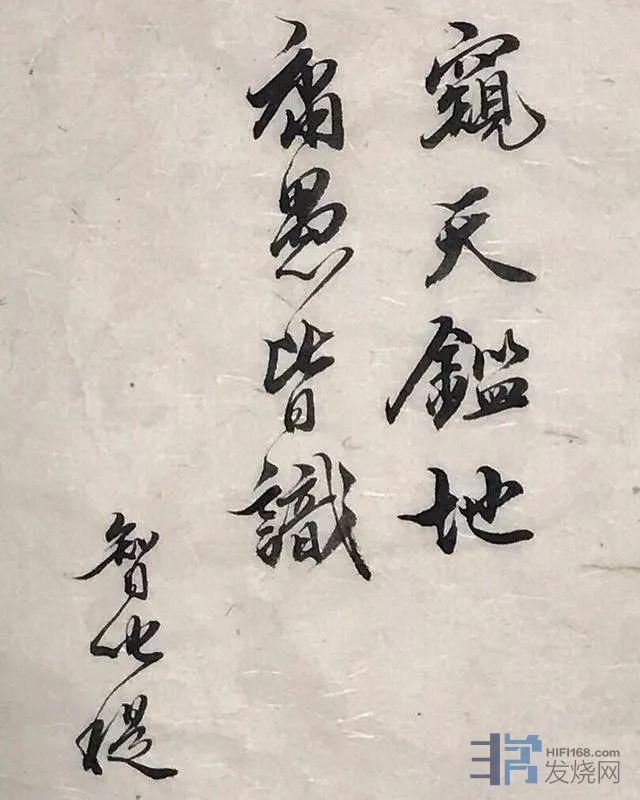 窺天鑑地
庸愚皆識
智
HIFI168.com
发烧网